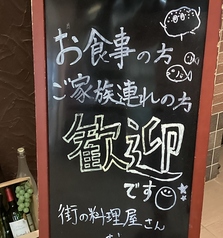 お食事の方
ご家族連れの方
歓迎
です
街の料理屋さん